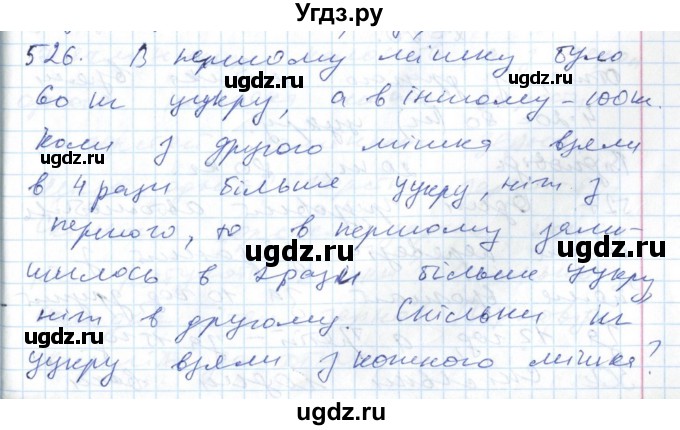 Угдз.ру
526. В першому мішку було
60 кг цукру, а в іншому - 100 кг.
Коли з другого мішка взяли
в 4 рази більше цукру, ніж з
першого, то в першому зали-
шилось в 2 рази більше цукру
ніж в другому. Скільки кг
цукру взяли з кожного мішка?
ugdz.ru
ugdz.ru
ugdz.ru
ugdz.ru
ugdz.ru
ugdz.ru
ugdz.ru
ugdz.ru
ugdz.ru
ugdz.ru